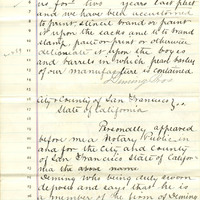 us for two years last past
and we have been accustomed
to print stencil brand or paint
it upon the sacks and to brand
stamp paint or print or otherwise
delineate it upon the boxes
and barrels in which pearl barley
of our manufacture is contained
Deming Bros
City & County of San Francisco } ss
State of California
Personally appeared
before me a Notary Public in
and for the City and County
of San Francisco State of Califor
nia the above name
Deming who being duly sworn
deposes and says that he is
a member of the firm of Deming